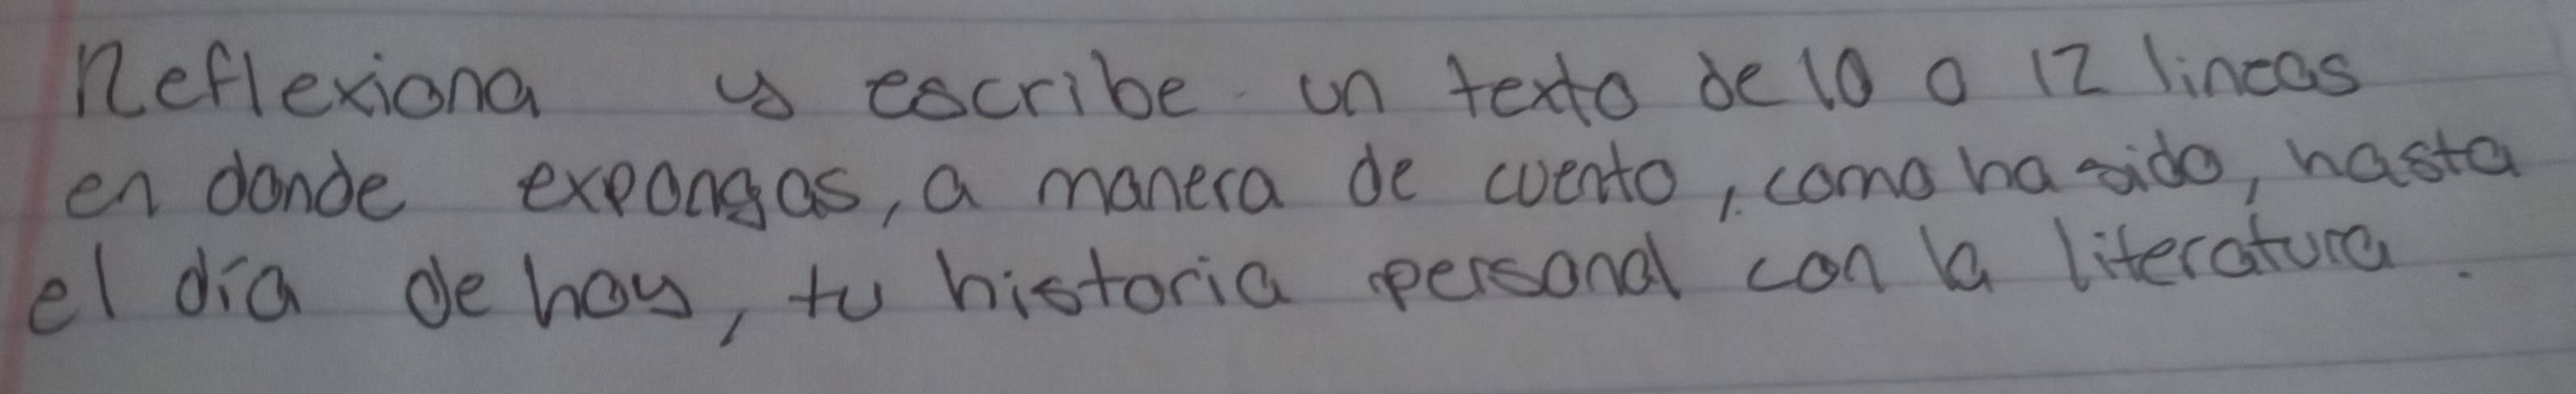 Reflexiona y escribe un texto de 10 o 12 lineas
en donde expongas, a manera de cuento, como ha sido, hasta
el día de hoy, tu historia personal con la literatura.